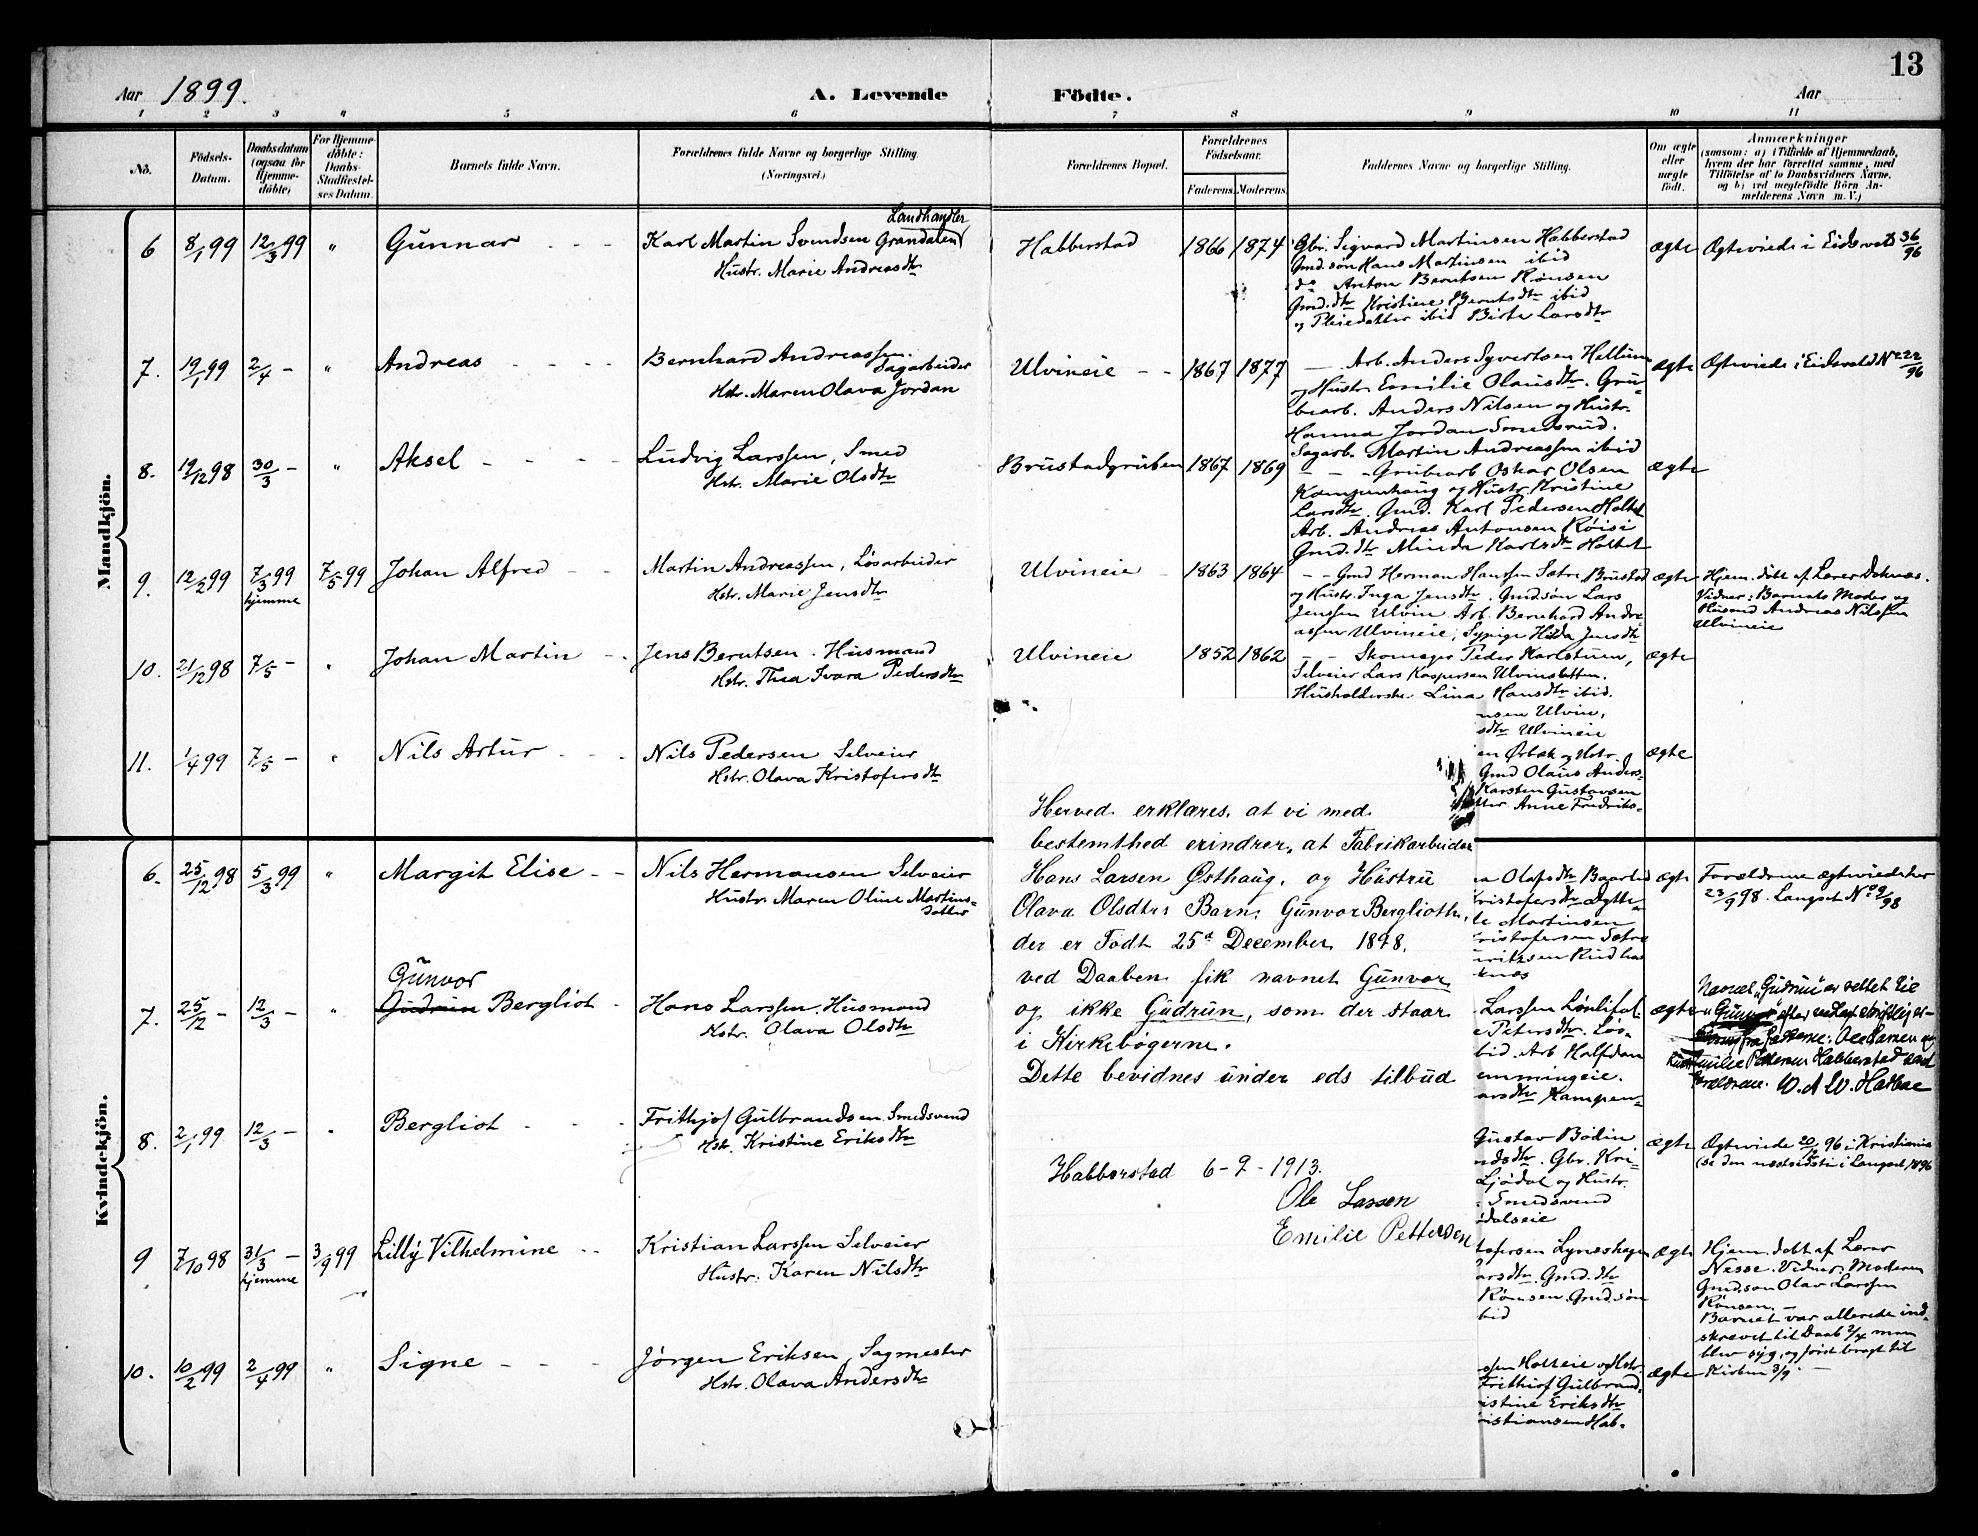 13
Aar 1899.
A. Levende Födte.
Aar
1 2 3 4 5 6 7 8 9 10 11
No.
Födsels-Datum.
Daabsdatum (ogsaa for Hjemme-döbte)
For Hjemme-döbte: Daabs-Stadfæstel-ses Datum.
Barnets fulde Navn.
Forældrenes fulde Navne og borgerlige Stilling.
(Næringsvei.)
Forældrenes Bopæl.
Forældrenes Födselsaar.
Faderens. Moderens.
Faddernes Navne og borgerlige Stilling.
Om ægte eller uægte født.
Anmærkninger
(saasom: a) i Tilfælde af Hjemmedaab,
hvem der har forrettet samme, med
Tilföielse af to Daabsvidners Navne,
og b) ved uægtefödte Börn An-
melderens Navn m. V.)
Mandkjön.
6 8/1 99 12/3 99 " Gunnar - - - Karl Martin Svendsen Grandalen
Landhandler
Hustr. Marie Andreasdtr
Habberstad 1866 1874
Gbr. Sigvard Martinsen Habberstad
Gmd.søn Hans Martinsen ibid
do Anton Berntsen Rønsen
Gmd.dtr Kristine Berntsdtr ibid
og Pleiedatter ibid Birte Larsdtr
ægte Ægteviede i Eidsvold 36/96
7. 19/1 99 2/4 - " Andreas - - - - Bernhard Andreassen.
Sagarbeider
Hstr. Maren Olava Jordan
Ulvineie - - 1867 1877
Arb. Anders Syvertsen Hellum
og Hustr Emilie Olausdtr. Gru-
bearb. Anders Nilsen og Hustr.
Hanna Jordan Smedsrud.
Sagarb. Martin Andreassen ibid
ægte Ægteviede i Eidsvold No 22/96
8. 19/12 98 30/3 - " Aksel - - - - Ludvig Larssen, Smed
Hstr. Marie Olsdtr
Brustadgruben 1867 1869
- - Grubearb Oskar Olsen
Kampenhaug og Hustr Kristine
Larsdtr. Gmd. Karl Pedersen Holtet
Arb. Andreas Antonsen Røisi
Gmd.dtr Minda Karlsdtr Holtet
ægte
9. 12/2 99 7/3 99 hjemme 7/5 99 Johan Alfred - - Martin Andreassen, Løsarbeider
Hstr. Marie Jensdtr
Ulvineie 1863 1864
- - Gmd Herman Hanssen Sætre Brustad
og Hustr. Inga Jensdtr. Gmdsøn Lars
Jenssen Ulvin Arb. Bernhard Andre-
assen Ulvineie, Sypige Hilda Jensdtr
ægte Hjem. døbt af Lærer Doknæs.
Vidner: Barnets Moder og
Husmd Andreas Nilssen
Ulvineie
10. 21/12 98 7/5 - " Johan Martin - - Jens Berntsen. Husmand
Hstr. Thea Ivara Pedersdtr
Ulvineie 1852 1862
- - Skomager Peder Karlstuen,
Selveier Lars Kaspersen Ulvinsletten.
Husholderske Lina Hansdtr ibid.
nsen Ulvin,
sdtr Ulvineie
ægte
11. 1/4 99 7/5 - " Nils Artur - - - Nils Pedersen Selveier
Hstr. Olava Kristofersdtr
en Ørbæk og Hstr.
Gmd Olaus Anders-
Karsten Gustavsen
tter Anne Fredriks-
ægte
Kvindekjön.
6. 25/12 98 5/3 99 " Margit Elise - - Nils Hermansen Selveier
Hustr. Maren Oline Martins-
datter
na Olafsdtr Baarlid
Kristofersdtr Dytte-
le Martinsen
Kristofersen Sætre
uritzsen Rud has
knæs
ægte Forældrene ægteviedeter
23/9 98. Langset No 9/98
7. 25/12 - 12/3 - " Gunvor
Gudrun Bergliot - Hans Larssen. Husmand
Hstr. Olava Olsdtr
Larssen Lønlifal
e Petersdtr. Løs-
bid. Arb Halfdan
emmingeie.
arsdtr Kampen-
ægte Navnet "Gudrun" er rettet til
"Gunvor" efter
fra Fadderne: Ole Larsen og
Emilie Pettersen Habberstad samt
Forældrene. W. A. W.
8. 2/1 99 12/3 - " Bergliot - - - Frithjof Gulbrandsen Smedsvend
Hstr. Kristine Eriksdtr
Gustav Bødin
ndsdtr. Gbr. Kri-
Ljødal og Hustr.
Smedsvend
ødalseie
ægte Ægteviede 20/12 96 i Kristiania
(se den næstsidste i Langset 1896
9 7/10 98 31/3 - hjemme 3/9 99 Lilly Vilhelmine - - Kristian Larssen Selveier
Hustr: Karen Nilsdtr
tofersen Lyneshagen
arsdtr. Gmd.dtr
Rønsen. Gmd.søn
bid
ægte Hjem. døbt af Lærer
Nesse. Vidner: Moderen
Gmd.søn Olav Larssen
Rønsen. -
Barnet var allerede ind-
skrevet til Daab 2/4 men
blev syg, og først bragt til
Kirken 3/9. -
10. 10/2 99 2/4 99 " Signe - - - Jørgen Eriksen, Sagmester
Hstr. Olava Andersdtr
ssen Holteie og Hstr.
Frithiof Gulbrand-
istine Eriksdtr
istiansen Hab-
ægte
Herved erklæres, at vi med
bestemthed erindrer, at Fabrikarbeider
Hans Larsen Østhaug, og Hustru
Olava Olsdtrs Barn, Gunvor Bergliothe,
der er Født 25d December 1898.
ved Daaben fik navnet Gunvor
og ikke Gudrun, som der staar
i Kirkebøgerne.
Dette bevidnes under eds tilbud
Habberstad 6-9-1913.
Ole Larsen
Emilie Pettersen